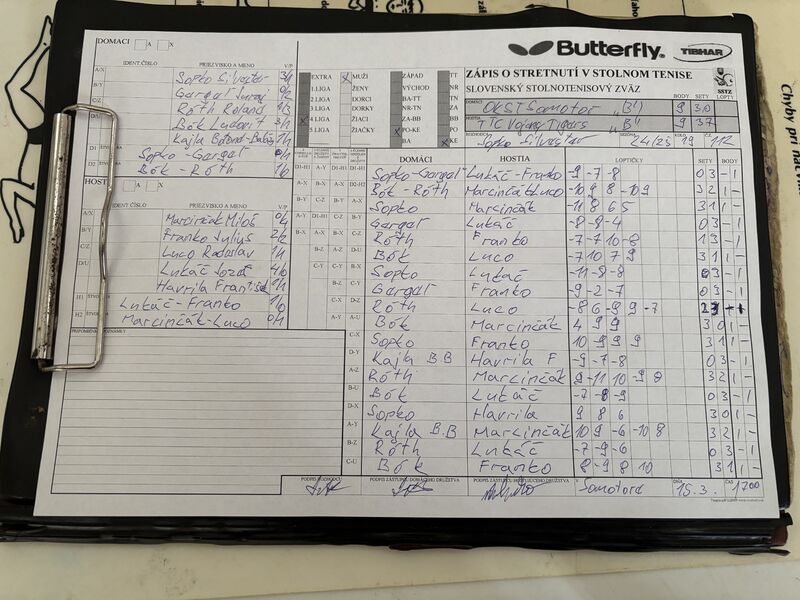 Butterfly
TIBHAR
ZÁPIS O STRETNUTÍ V STOLNOM TENISE
SLOVENSKÝ STOLNOTENISOVÝ ZVÄZ
SSTZ
BODY SETY LOPTY
DOMÁCI OKST Samotor "B" 9 30
HOSTIA TTC Vojany Tigers "B" 9 37
Sopko Silvester 24/25 19 112
EXTRA X MUŽI ZÁPAD TT
1.LIGA ŽENY VÝCHOD NR
2.LIGA DORCI BA-TT TN
3.LIGA DORKY NR-TN ZA
4.LIGA ŽIACI ZA-BB BB
5.LIGA ŽIAČKY PO-KE PO
BA KE
DOMÁCI A X
IDENT.ČÍSLO PRIEZVISKO A MENO V/P
A/X Sopko Silvester
B/Y Gargaľ Juraj
C/Z Róth Roland
D/U Bók Ľudovít
Kajla
Sopko - Gargaľ
Bók - Róth
HOSTIA A X
IDENT.ČÍSLO PRIEZVISKO A MENO V/P
Marcinčák Miloš
Franko Július
Luco Radoslav
Lukáč Jozef
Havrila František
H1 Lukáč-Franko
H2 Marcinčák-Luco
PRIPOMIENKY, POZNÁMKY
DOMÁCI HOSTIA LOPTIČKY SETY BODY
Sopko-Gargaľ Lukáč-Franko -9 -7 -8 0 3 - 1
Bók - Róth Marcinčák Luco -10 9 8 -10 9 3 2 1 -
Sopko Marcinčák -11 8 6 5 3 1 1 -
Gargaľ Lukáč -8 -8 -4 0 3 - 1
Róth Franko -7 -7 10 -8 1 3 - 1
Bók Luco -7 10 7 9 3 1 1 -
Sopko Lukáč -11 -8 -8 0 3 - 1
Gargaľ Franko -9 -2 -7 0 3 - 1
Róth Luco -8 6 -9 9 -7 2 3 - 1
Bók Marcinčák 4 9 9 3 0 1 -
Sopko Franko 10 -9 9 9 3 1 1 -
Kajla B.B Havrila F -9 -7 -8 0 3 - 1
Róth Marcinčák 9 -11 10 -9 8 3 2 1 -
Bók Lukáč -7 -8 -9 0 3 - 1
Sopko Havrila 9 8 6 3 0 1 -
Kajla B.B Marcinčák 10 9 -6 -10 8 3 2 1 -
Róth Lukáč -7 -9 -6 0 3 - 1
Bók Franko 8 -9 8 10 3 1 1 -
PODPIS ROZHODCU PODPIS ZÁSTUPCU DOMÁCEHO DRUŽSTVA PODPIS ZÁSTUPCU HOSŤUJÚCEHO DRUŽSTVA V DŇA ČAS
15.3. 17 00